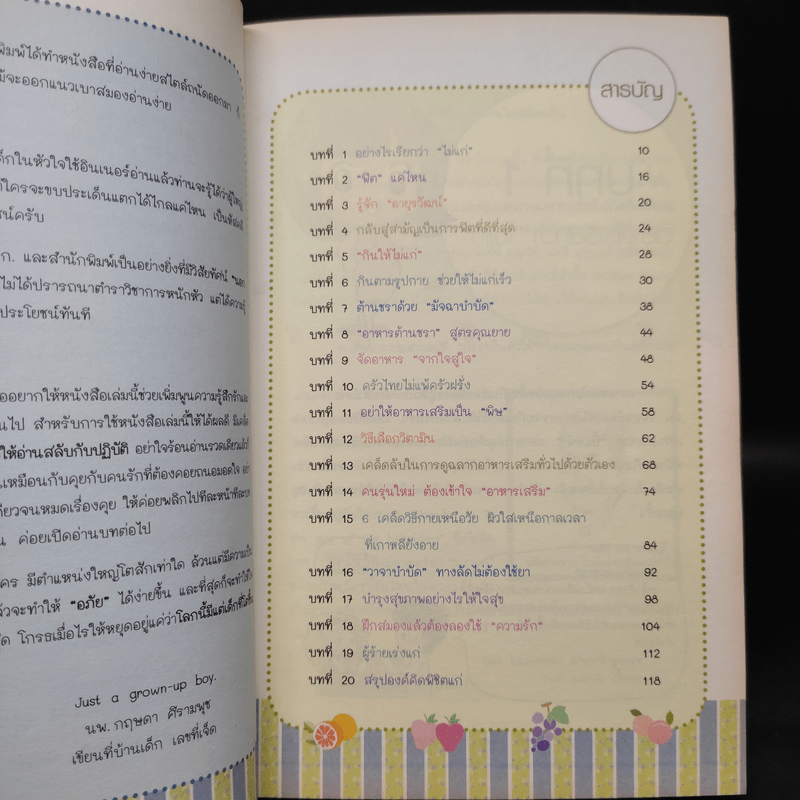 พิมพ์ได้ทำหนังสือที่อ่านง่ายสไตล์ถนัดออกมา
จะออกแนวเบาสมองอ่านง่าย
ด็กในหัวใจใช้อินเนอร์อ่านแล้วท่านจะรู้ได้ว่าผู้ใหญ่
ใครจะขบประเด็นแตกได้ไกลแค่ไหน เป็น
ชน์ครับ
ก. และสำนักพิมพ์เป็นอย่างยิ่งที่มีวิสัยทัศน์
ไม่ได้ปรารถนาตำราวิชาการหนักหัว แต่ได้ความรู้
ประโยชน์ทันที
ออยากให้หนังสือเล่มนี้ช่วยเพิ่มพูนความรู้สึกรักและ
นไป สำหรับการใช้หนังสือเล่มนี้ให้ได้ผลดี มีเคล็ด
ให้อ่านสลับกับปฏิบัติ อย่าใจร้อนอ่านรวดเดียว
นเหมือนกับคุยกับคนรักที่ต้องคอยถนอมอดใจ อย่า
ดียวจนหมดเรื่องคุย ให้ค่อยพลิกไปทีละหน้าทีละบท
น ค่อยเปิดอ่านบทต่อไป
คร มีตำแหน่งใหญ่โตสักเท่าใด ล้วนแต่มีความเป็น
ล้วจะทำให้ "อภัย" ได้ง่ายขึ้น และที่สุดก็จะทำได้
ด โกรธเมื่อไรให้หยุดอยู่แค่ว่าโลกนี้มีแต่เด็กที่โตขึ้น
Just a grown-up boy.
นพ. กฤษดา ศิรามพุช
เขียนที่บ้านเด็ก เลขที่เจ็ด
สารบัญ
บทที่ 1 อย่างไรเรียกว่า "ไม่แก่" 10
บทที่ 2 "ฟิต" แค่ไหน 16
บทที่ 3 รู้จัก "อายุรวัฒน์" 20
บทที่ 4 กลับสู่สามัญเป็นการฟิตที่ดีที่สุด 24
บทที่ 5 "กินให้ไม่แก่" 28
บทที่ 6 กินตามรูปกาย ช่วยให้ไม่แก่เร็ว 30
บทที่ 7 ต้านชราด้วย "มัจฉาบำบัด" 38
บทที่ 8 "อาหารต้านชรา" สูตรคุณยาย 44
บทที่ 9 จัดอาหาร "จากใจสู่ใจ" 48
บทที่ 10 ครัวไทยไม่แพ้ครัวฝรั่ง 54
บทที่ 11 อย่าให้อาหารเสริมเป็น "พิษ" 58
บทที่ 12 วิธีเลือกวิตามิน 62
บทที่ 13 เคล็ดลับในการดูฉลากอาหารเสริมทั่วไปด้วยตัวเอง 68
บทที่ 14 คนรุ่นใหม่ ต้องเข้าใจ "อาหารเสริม" 74
บทที่ 15 6 เคล็ดวิธีกายเหนือวัย ผิวใสเหนือกาลเวลา
ที่เกาหลียังอาย 84
บทที่ 16 "วาจาบำบัด" ทางลัดไม่ต้องใช้ยา 92
บทที่ 17 บำรุงสุขภาพอย่างไรให้ใจสุข 98
บทที่ 18 ฝึกสมองแล้วต้องลองใช้ "ความรัก" 104
บทที่ 19 ผู้ร้ายเร่งแก่ 112
บทที่ 20 สรุปองค์คิดพิชิตแก่ 118